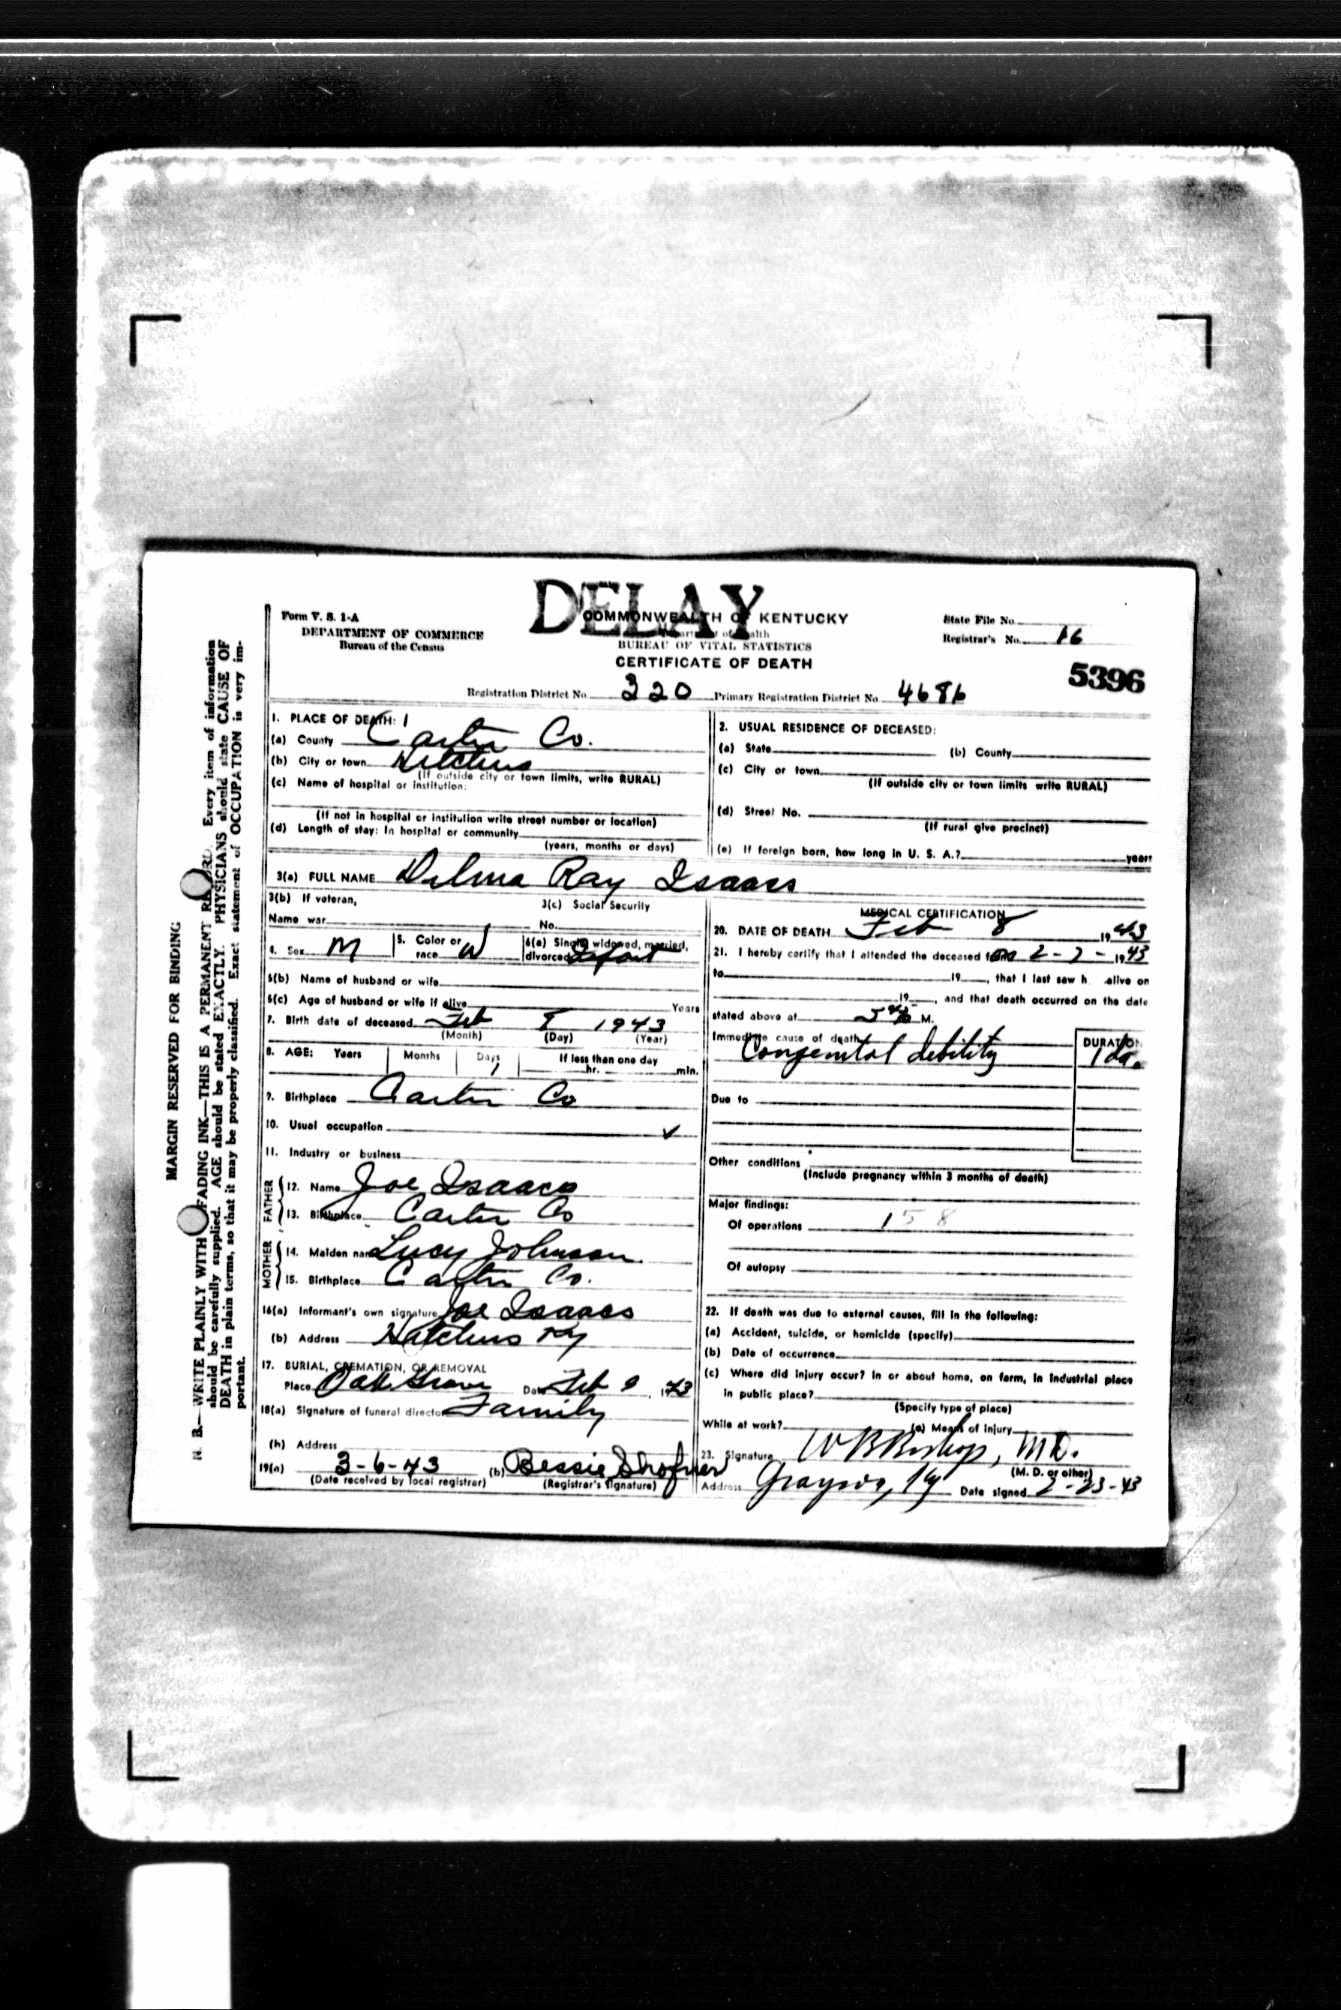 DELAY
Form V. S. 1-A
DEPARTMENT OF COMMERCE
Bureau of the Census
COMMONWEALTH OF KENTUCKY
BUREAU OF VITAL STATISTICS
CERTIFICATE OF DEATH
State File No.
Registrar's No. 16
5396
Registration District No. 320 Primary Registration District No. 4686
1. PLACE OF DEATH:
(a) County Carter Co.
(b) City or town Hitchins
(If outside city or town limits, write RURAL)
(c) Name of hospital or institution:
(If not in hospital or institution write street number or location)
(d) Length of stay: In hospital or community
(years, months or days)
2. USUAL RESIDENCE OF DECEASED:
(a) State (b) County
(c) City or town
(If outside city or town limits write RURAL)
(d) Street No.
(If rural give precinct)
(e) If foreign born, how long in U. S. A.? years
3(a) FULL NAME Delma Ray Isaacs
3(b) If veteran, 3(c) Social Security
Name war No.
4. Sex M 5. Color or race W 6(a) Single, widowed, married, divorced Infant
6(b) Name of husband or wife
6(c) Age of husband or wife if alive Years
7. Birth date of deceased Feb 8 1943
(Month) (Day) (Year)
8. AGE: Years Months Days If less than one day
1 hr. min.
9. Birthplace Carter Co
10. Usual occupation
11. Industry or business
FATHER
12. Name Joe Isaacs
13. Birthplace Carter Co
MOTHER
14. Maiden name Lucy Johnson
15. Birthplace Carter Co.
16(a) Informant's own signature Joe Isaacs
(b) Address Hitchins Ky
17. BURIAL, CREMATION, OR REMOVAL
Place Oak Grove Date Feb 9, 1943
18(a) Signature of funeral director Family
(b) Address
19(a) 3-6-43 (b) Bessie Shofner
(Date received by local registrar) (Registrar's signature)
MEDICAL CERTIFICATION
20. DATE OF DEATH Feb 8 1943
21. I hereby certify that I attended the deceased 2-7-1943
to 19 , that I last saw h alive on
19 , and that death occurred on the date
stated above at M.
Immediate cause of death DURATION
Congenital debility 1 da.
Due to
Other conditions
(Include pregnancy within 3 months of death)
Major findings:
Of operations 158
Of autopsy
22. If death was due to external causes, fill in the following:
(a) Accident, suicide, or homicide (specify)
(b) Date of occurrence
(c) Where did injury occur? In or about home, on farm, in industrial place
in public place?
(Specify type of place)
While at work? (e) Means of injury
23. Signature W B Bishop, M.D.
(M. D. or other)
Address Grayson, Ky Date signed 2-23-43
MARGIN RESERVED FOR BINDING
N. B.—WRITE PLAINLY WITH FADING INK—THIS IS A PERMANENT RECORD. Every item of information
should be carefully supplied. AGE should be stated EXACTLY. PHYSICIANS should state CAUSE OF
DEATH in plain terms, so that it may be properly classified. Exact statement of OCCUPATION is very im-
portant.